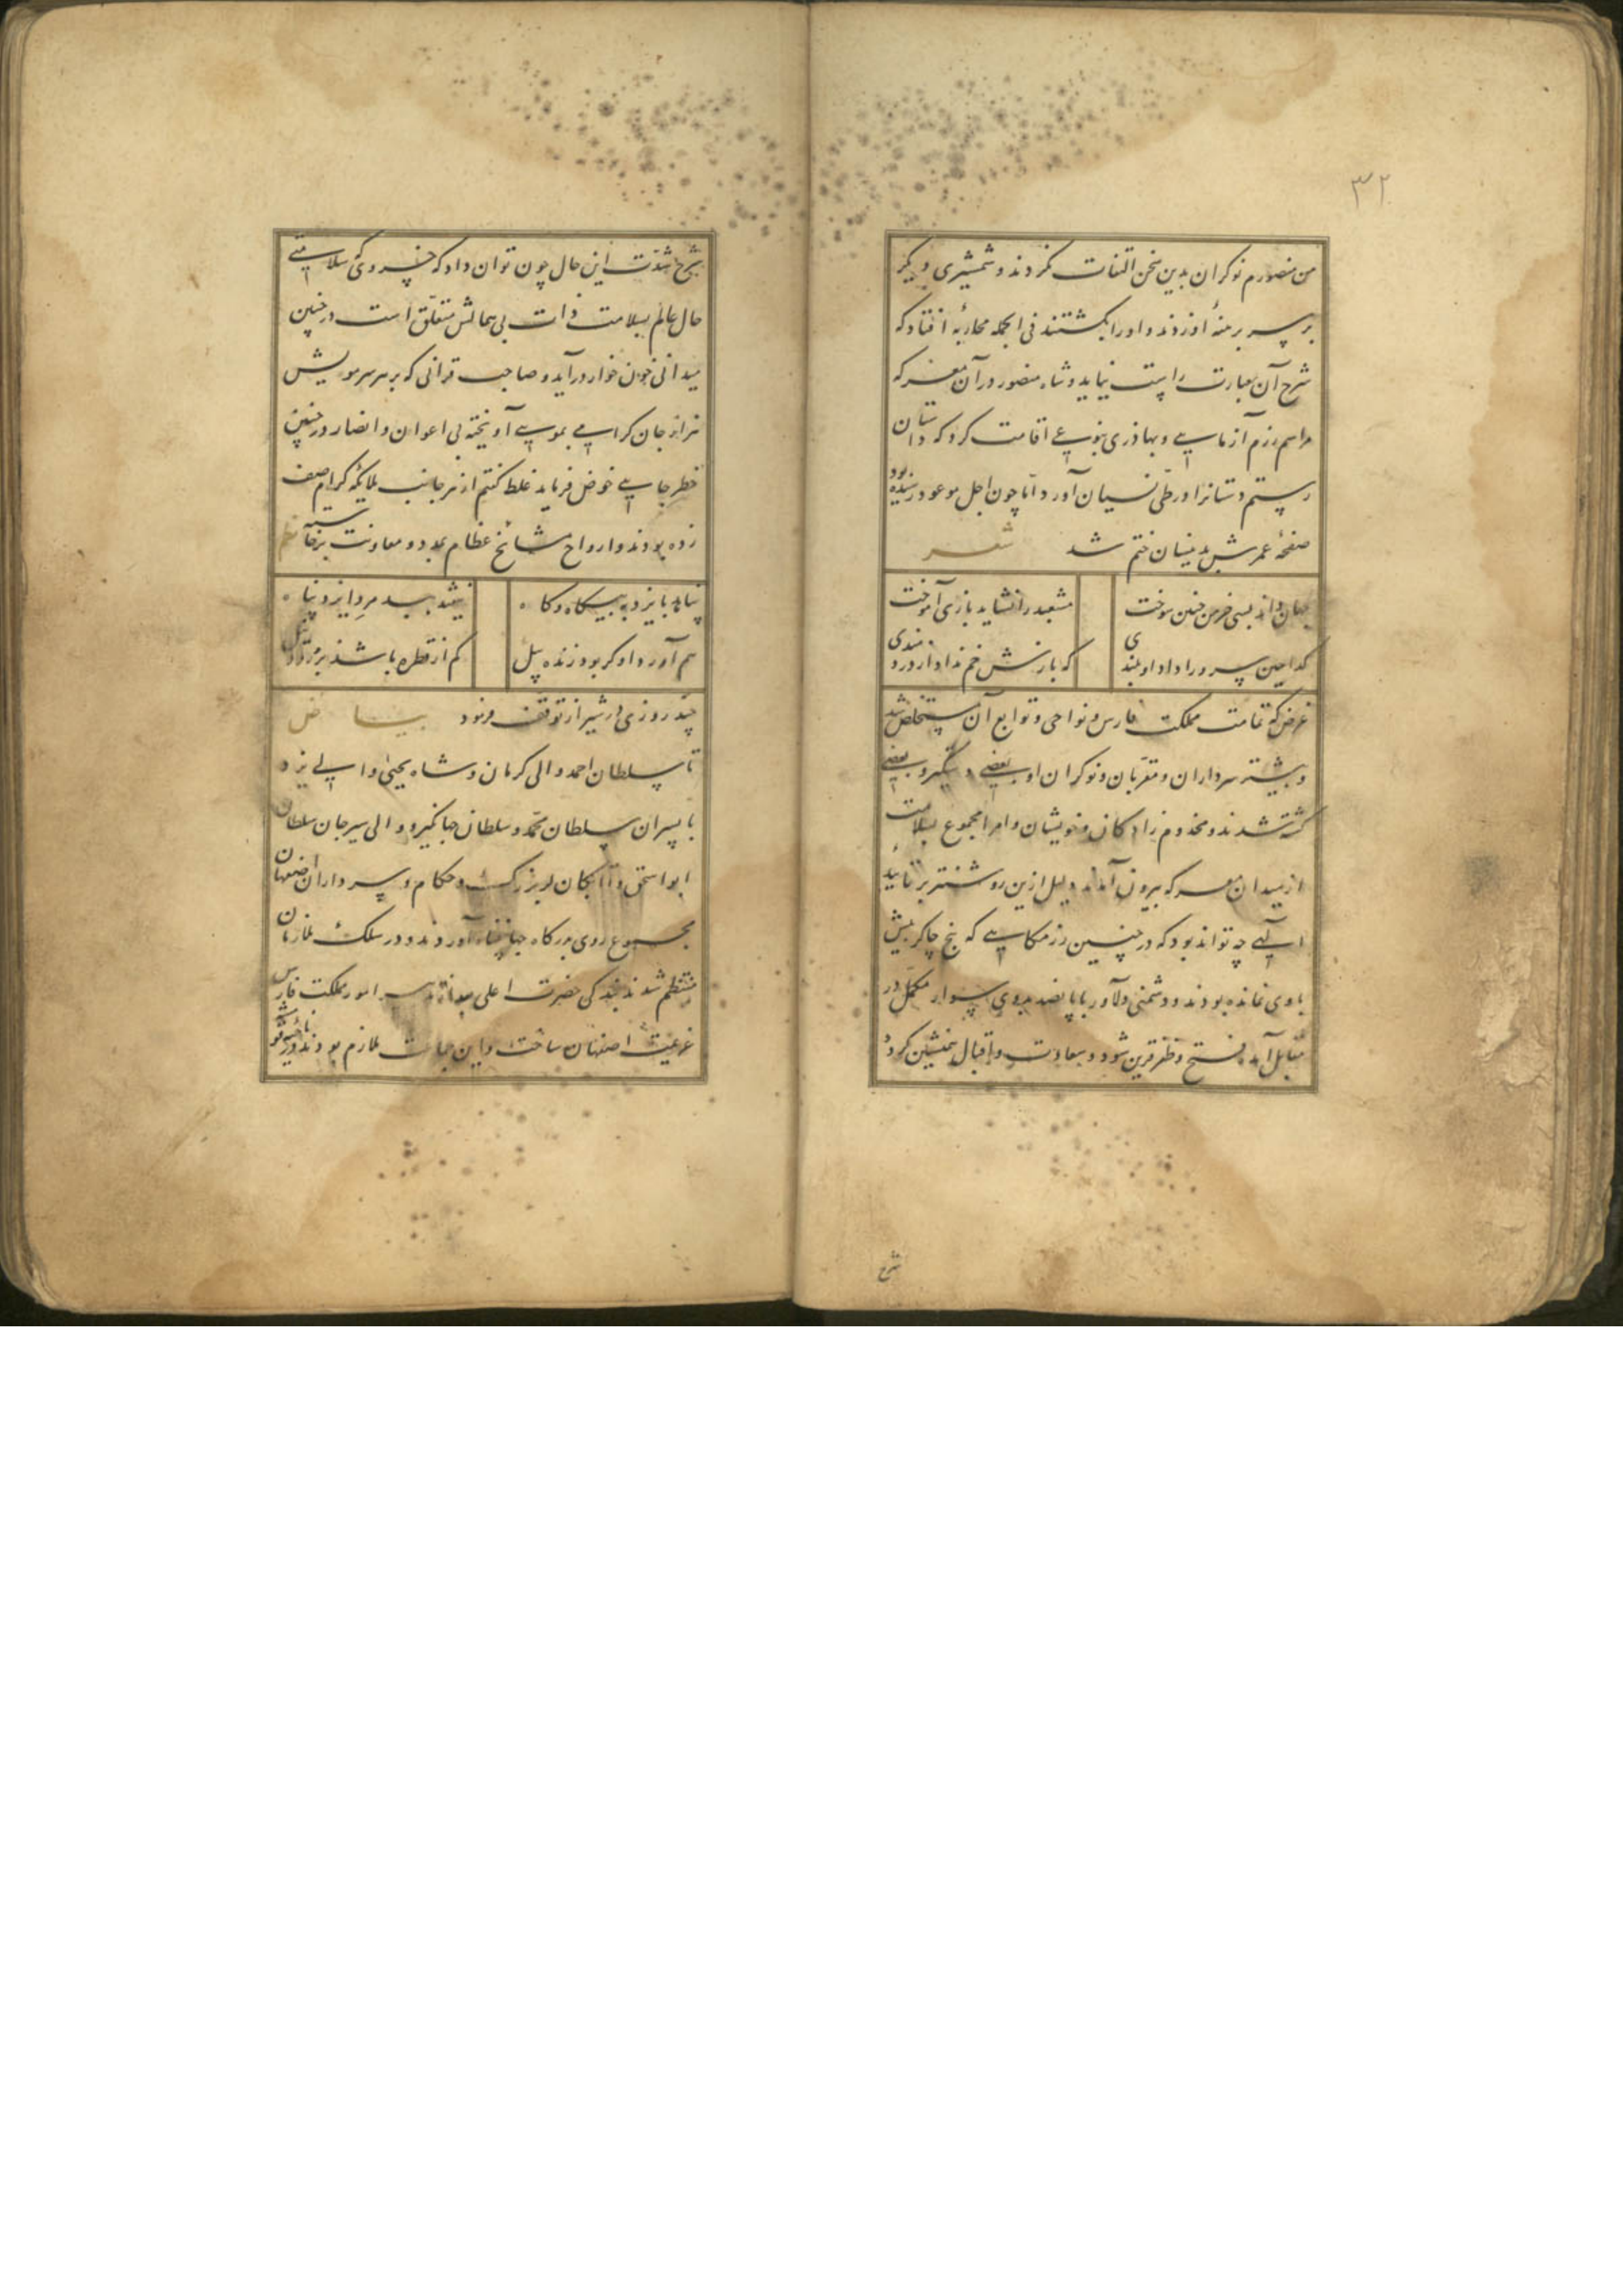 ۳۲
من منصورم نوکران بدین سخن التفات نکردند و شمشیری دیگر
بر سر برهنهٔ او زدند و او را بکشتند فی الجمله محاربهٔ افتاد که
شرح آن بعبارت راست نیاید و شاه منصور در آن معرکه
مراسم رزم آزمایی و بهاذری بنوعی اقامت کرد که داستان
رستم دستانرا در طی نسیان آورد اما چون اجل موعود رسیده بود
صفحهٔ عمرش بدینسان ختم شد شعر
جهان داند بسی خرمن چنین سوخت
مشعبد را نشاید بازی آموخت
کدامین سرو را داد او بلندی
که بازش خم نداد از دردمندی
غرض که تمامت مملکت فارس و نواحی و توابع آن مستخلص شد
و بیشتر سرداران و مقربان و نوکران او بعضی دستگیر و بعضی
کشته شدند و مخدوم زادکان و خویشان و امرا مجموع بسلامت
از میدان معرکه بیرون آمدند دلیل ازین روشنتر بر تأیید
الهی چه تواند بود که در چنین رزمکاهی که پنج چاکر بیش
با وی نمانده بودند و دشمنی دلاور با پانصد سوار مکمل در
مقابل آمد فتح و ظفر قرین شود و سعادت و اقبال همنشین کردد
شرح
شرح شدت این حال چون توان داد که خسروی که سلامتی
حال عالم بسلامت ذات بی همالش متعلق است در چنین
میدانی خون خوار در آید و صاحب قرانی که بر هر سر مویش
هزار جان کرامی بمویی آویخته بی اعوان و انصار در چنین
خطر جایی خوض فرماید غلط کفتم از هر جانب ملایکه کرام صف
زده بودند و ارواح مشایخ عظام بمدد و معاونت برخاسته نظم
پناهد بایزد به بیکاه و کاه
نپیچد سر مرد ایزد پناه
سر آورد او کر بود زنده پیل
کم از قطره باشد بر رود نیل
چند روزی در شیراز توقف فرمود بیاض
تا سلطان احمد والی کرمان و شاه یحیی والی یزد
با پسران سلطان محمد و سلطان جهانکیر و والی سیرجان سلطان
ابو اسحق و اتابکان لر بزرک و حکام و سرداران اصفهان
مجموع روی بدرکاه جهانپناه آوردند و در سلک ملازمان
منتظم شدند بندکی حضرت اعلی امور مملکت فارس
عزیمت اصفهان ساخت و این جماعت ملازم بودند